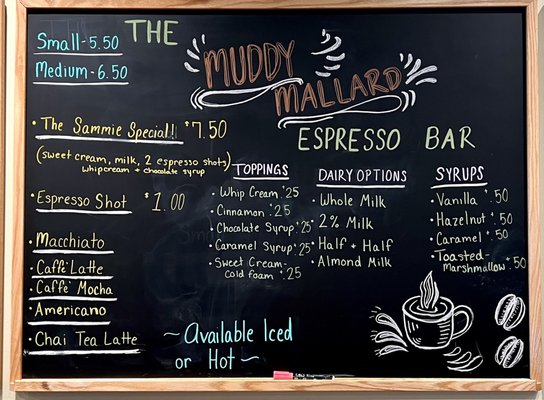 Small - 5.50
Medium - 6.50
THE
MUDDY
MALLARD
ESPRESSO BAR
• The Sammie Special!! $7.50
(sweet cream, milk, 2 espresso shots)
whipcream + chocolate syrup
• Espresso Shot $1.00
• Macchiato
• Caffè Latte
• Caffè Mocha
• Americano
• Chai Tea Latte
TOPPINGS
• Whip Cream $.25
• Cinnamon $.25
• Chocolate Syrup $.25
• Caramel Syrup $.25
• Sweet Cream-
Cold foam $.25
DAIRY OPTIONS
• Whole Milk
• 2% Milk
• Half + Half
• Almond Milk
SYRUPS
• Vanilla $.50
• Hazelnut $.50
• Caramel $.50
• Toasted-
Marshmallow $.50
~ Available Iced
or Hot ~